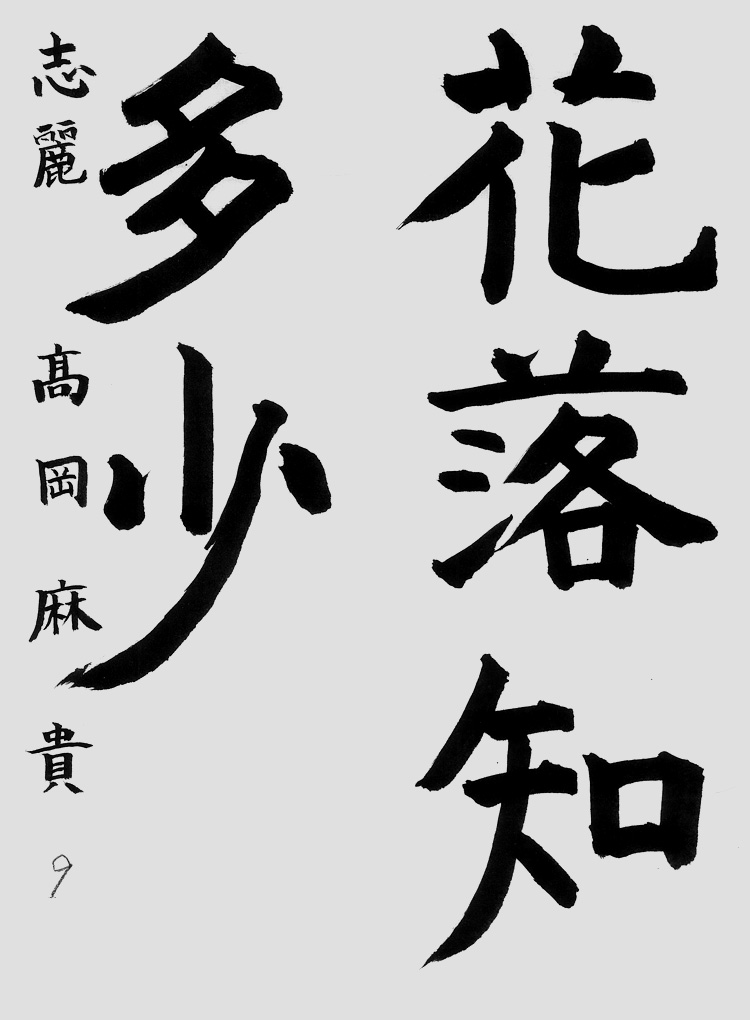 花落知
多少
志麗 髙岡麻貴
9